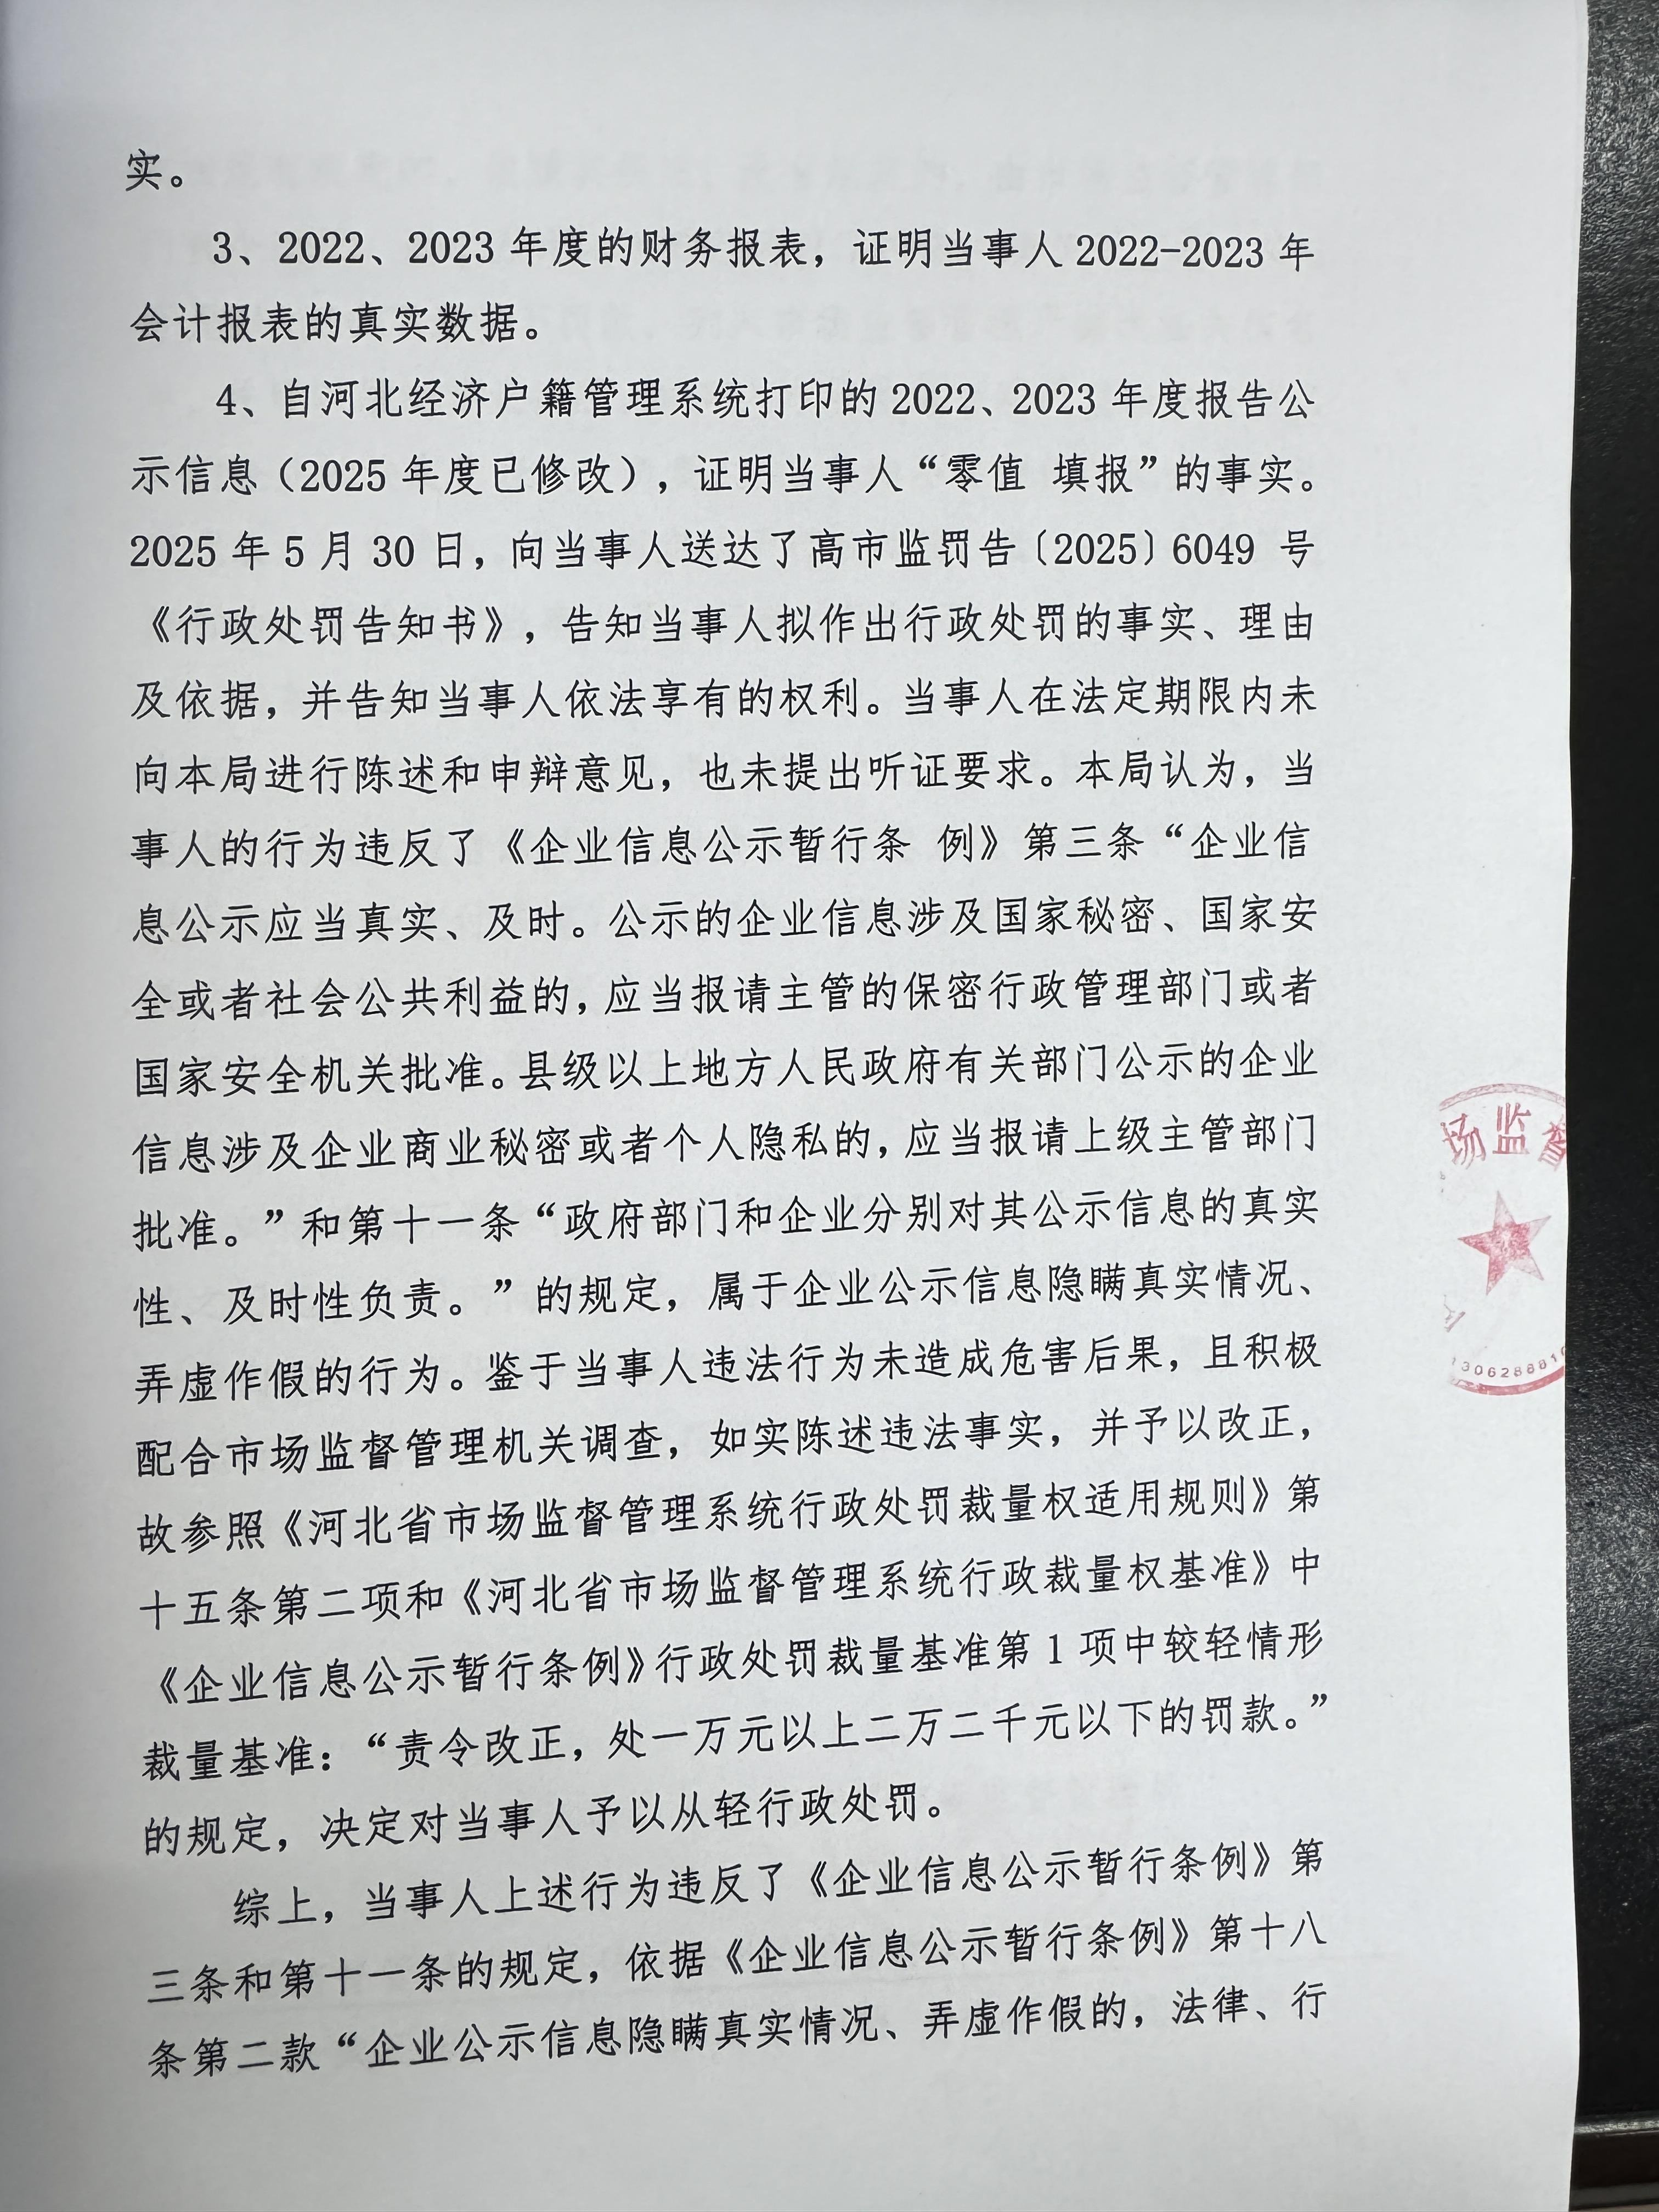 实。
3、2022、2023 年度的财务报表，证明当事人 2022-2023 年
会计报表的真实数据。
4、自河北经济户籍管理系统打印的 2022、2023 年度报告公
示信息（2025 年度已修改），证明当事人“零值 填报”的事实。
2025 年 5 月 30 日，向当事人送达了高市监罚告〔2025〕6049 号
《行政处罚告知书》，告知当事人拟作出行政处罚的事实、理由
及依据，并告知当事人依法享有的权利。当事人在法定期限内未
向本局进行陈述和申辩意见，也未提出听证要求。本局认为，当
事人的行为违反了《企业信息公示暂行条 例》第三条“企业信
息公示应当真实、及时。公示的企业信息涉及国家秘密、国家安
全或者社会公共利益的，应当报请主管的保密行政管理部门或者
国家安全机关批准。县级以上地方人民政府有关部门公示的企业
信息涉及企业商业秘密或者个人隐私的，应当报请上级主管部门
批准。”和第十一条“政府部门和企业分别对其公示信息的真实
性、及时性负责。”的规定，属于企业公示信息隐瞒真实情况、
弄虚作假的行为。鉴于当事人违法行为未造成危害后果，且积极
配合市场监督管理机关调查，如实陈述违法事实，并予以改正，
故参照《河北省市场监督管理系统行政处罚裁量权适用规则》第
十五条第二项和《河北省市场监督管理系统行政裁量权基准》中
《企业信息公示暂行条例》行政处罚裁量基准第 1 项中较轻情形
裁量基准：“责令改正，处一万元以上二万二千元以下的罚款。”
的规定，决定对当事人予以从轻行政处罚。
综上，当事人上述行为违反了《企业信息公示暂行条例》第
三条和第十一条的规定，依据《企业信息公示暂行条例》第十八
条第二款“企业公示信息隐瞒真实情况、弄虚作假的，法律、行
场监督
1306288810